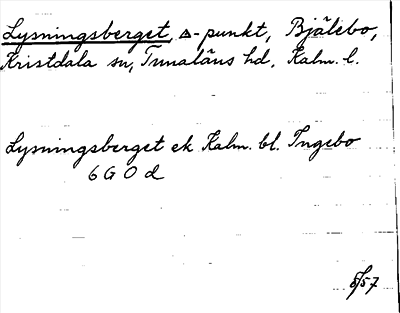 Lysningsberget, △-punkt, Bjälebo,
Kristdala sn, Tunaläns hd, Kalm. l.
Lysningsberget ek Kalm. bl. Ingebo
6 G O d
8/57